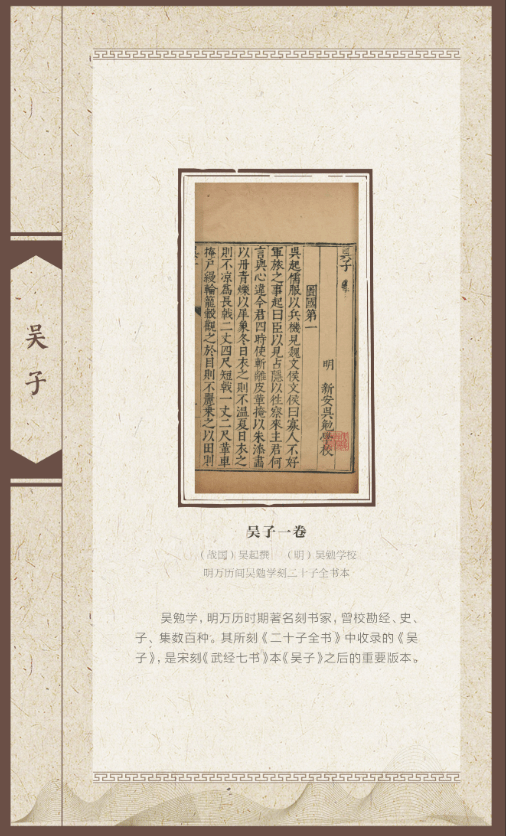 吴子
吳子
明 新安吳勉學校
圖國第一
吳起儒服以兵機見魏文侯文侯曰寡人不好
軍旅之事起曰臣以見占隱以徃察來主君何
言與心違今君四時使斬離皮革掩以朱漆畫
以丹青爍以犀象冬日衣之則不溫夏日衣之
則不凉爲長戟二丈四尺短戟一丈二尺革車
掩户縵輪籠轂觀之於目則不麗乘之以田則
吴子一卷
（战国）吴起撰 （明）吴勉学校
明万历间吴勉学刻二十子全书本
吴勉学，明万历时期著名刻书家，曾校勘经、史、
子、集数百种。其所刻《二十子全书》中收录的《吴
子》，是宋刻《武经七书》本《吴子》之后的重要版本。